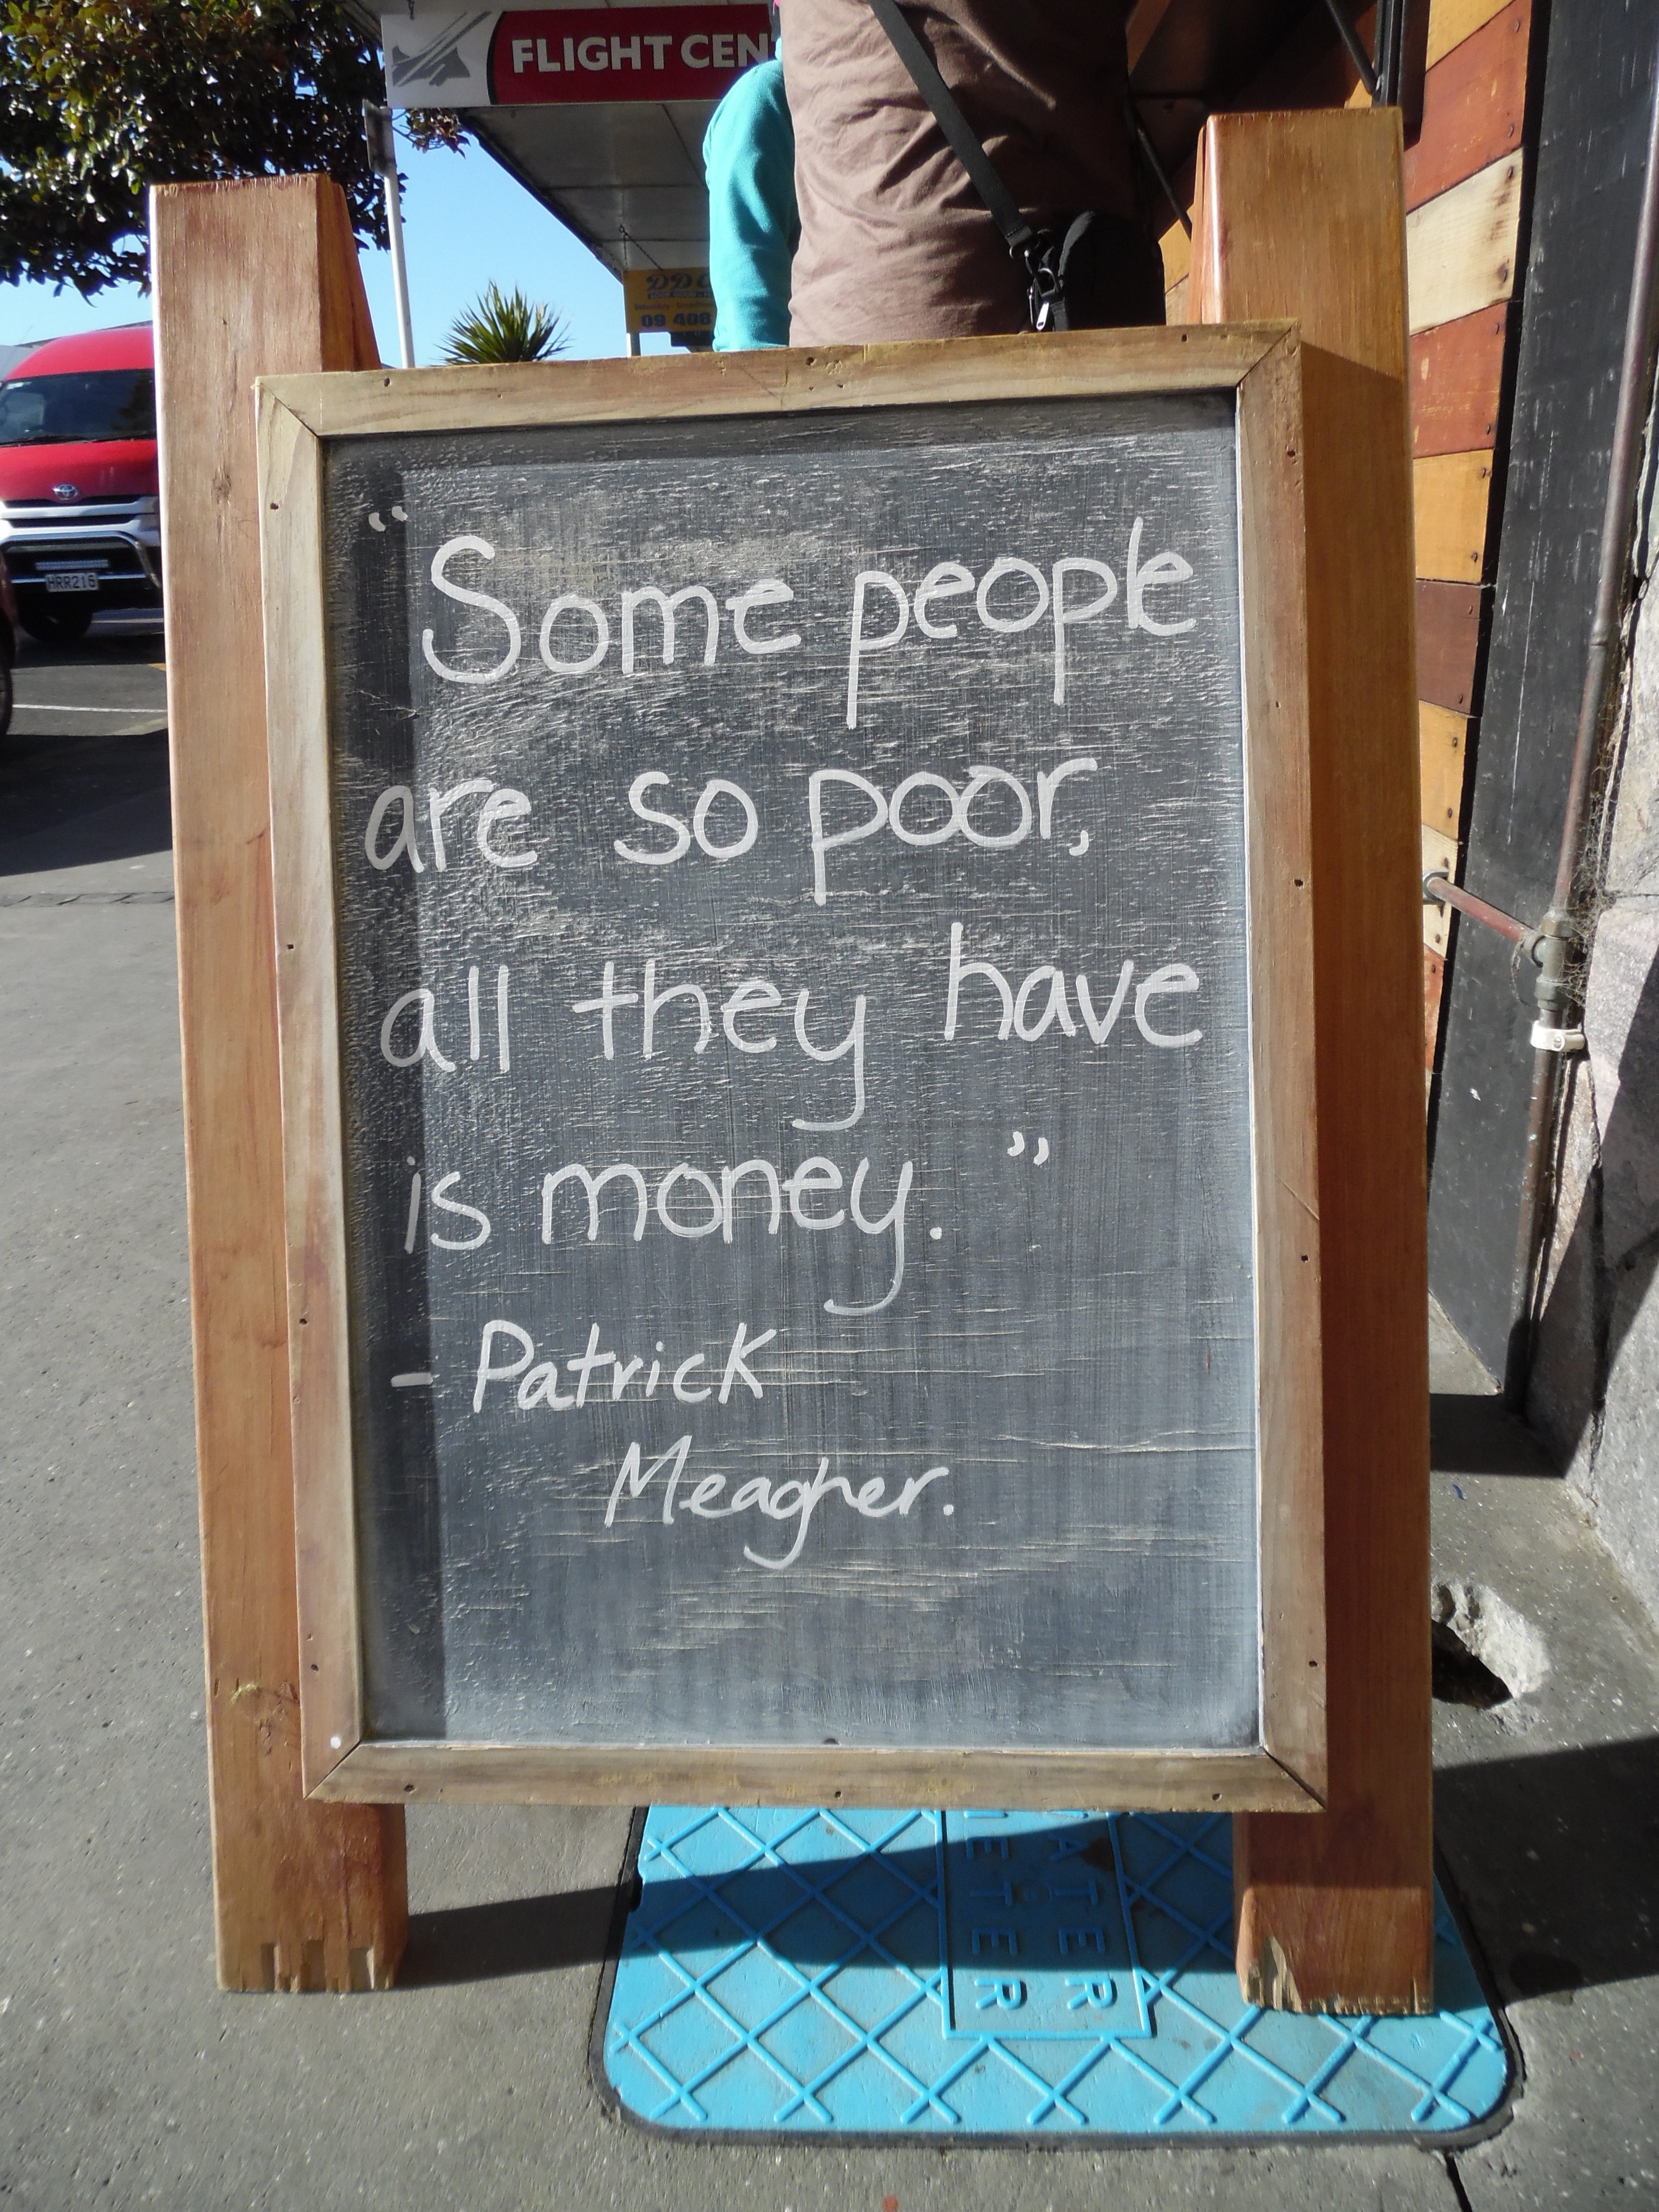 FLIGHT CEN
09 408
HRR216
“Some people
are so poor,
all they have
is money.”
- Patrick
Meagher.
WATER
METER